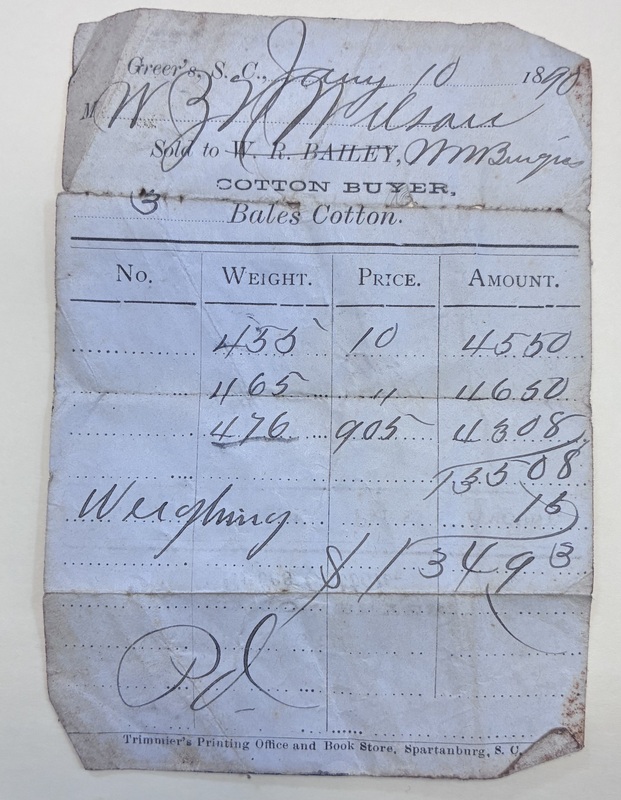 Greer's, S. C., Jany 10 1890
M W B W Wilson
Sold to W. R. BAILEY,
COTTON BUYER,
3 Bales Cotton.
No. WEIGHT. PRICE. AMOUNT.
455 10 4550
465 " 4650
476 905 4308
13508
Weighing 15
$134 93
Pd
Trimmier's Printing Office and Book Store, Spartanburg, S. C.